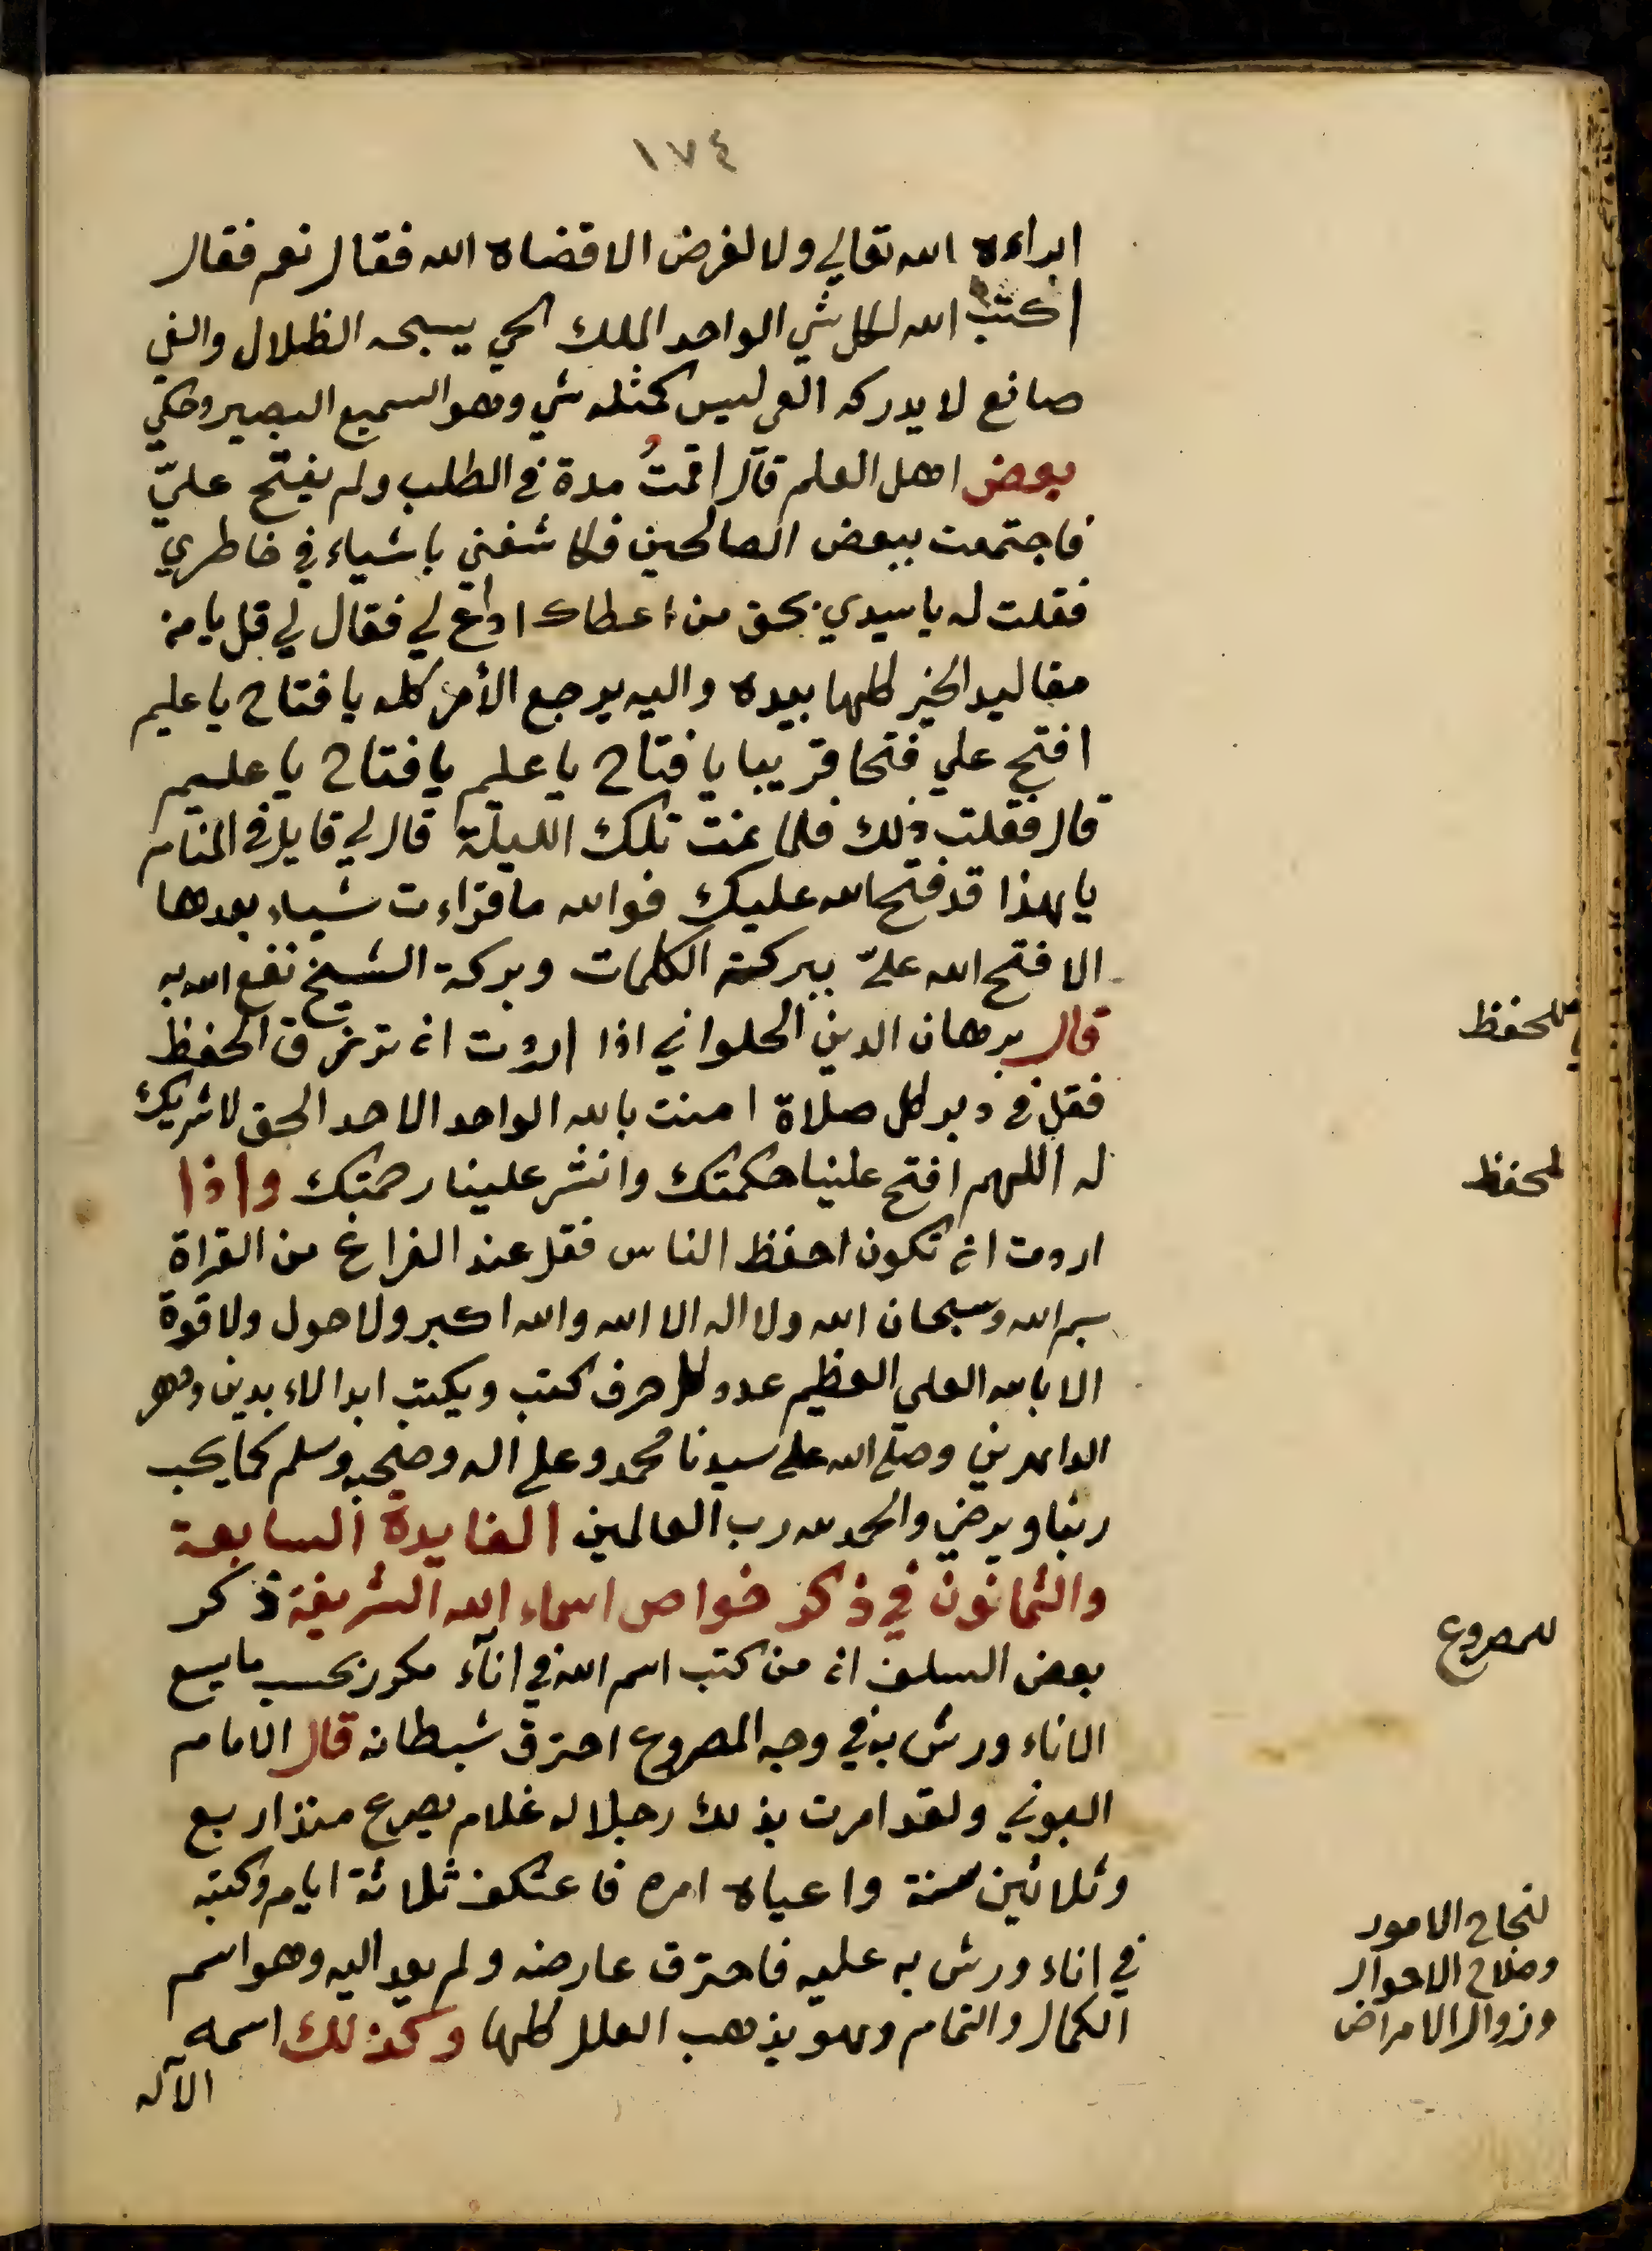 ١٧٤
ابراءه الله تعالي ولا لغرض الا قضاه الله فقال نعم فقال
اكتب الله لكل شي الواحد الملك الحي يسبحه الظلال والفي
صانع لا يدركه العي ليس كمثله شي وهو السميع البصير وحكي
بعض اهل العلم قال اقمتُ مدة في الطلب ولم يفتح عليّ
فاجتمعت ببعض الصالحين فكاشفني باشياء في خاطري
فقلت له يا سيدي بحق من اعطاك ادع لي فقال لي قل يا من
مقاليد الخير كلها بيده واليه يرجع الأمر كله يا فتاح يا عليم
افتح علي فتحا قريبا يا فتاح يا عليم يا فتاح يا عليم
قال فقلت ذلك فلما نمت تلك الليلة قال لي قايل في المنام
يا هذا قد فتح الله عليك فوالله ما قراءت شياء بعدها
الا فتح الله عليّ ببركة الكلمات وبركة الشيخ نفع الله به
قال برهان الدين الحلواني اذا اردت ان ترزق الحفظ
فقل في دبر كل صلاة امنت بالله الواحد الاحد الحق لا شريك
له اللهم افتح علينا حكمتك وانشر علينا رحمتك واذا
اردت ان تكون احفظ الناس فقل عند الفراغ من القراة
بسم الله وسبحان الله ولا اله الا الله والله اكبر ولا حول ولا قوة
الا بالله العلي العظيم عدد كل حرف كتب ويكتب ابد الاءبدين ودهر
الداهرين وصلي الله على سيدنا محمد وعلى اله وصحبه وسلم كما يحب
ربنا ويرضي والحمد لله رب العالمين الفايدة السابعة
والثمانون في ذكر خواص اسماء الله الشريفة ذكر
بعض السلف ان من كتب اسم الله في انآء مكرر بحسب ما يسع
الاناء ورش به في وجه المصروع احترق شيطانه قال الامام
البوني ولقد امرت بذلك رجلا له غلام يصرع منذ اربع
وثلاثين سنة واعياه امره فاعتكف ثلاثة ايام وكتبه
في اناء ورش به عليه فاحترق عارضه ولم يعد اليه وهو اسم
الكمال والتمام وهو يذهب العلل كلها وكذلك اسمه
الآله
للحفظ
لحفظ
للمصروع
لنجاح الامور
وصلاح الاحوال
وزوال الامراض